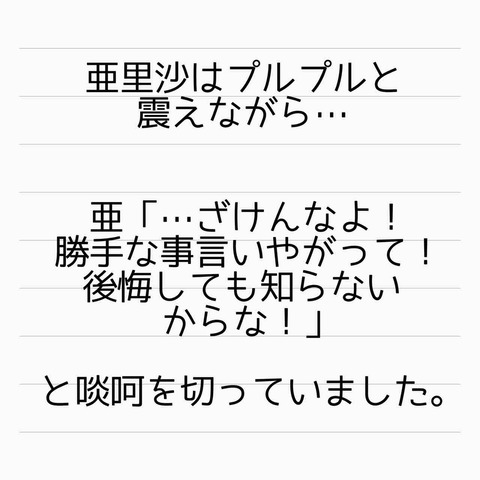 亜里沙はプルプルと
震えながら…
亜「…ざけんなよ！
勝手な事言いやがって！
後悔しても知らない
からな！」
と啖呵を切っていました。